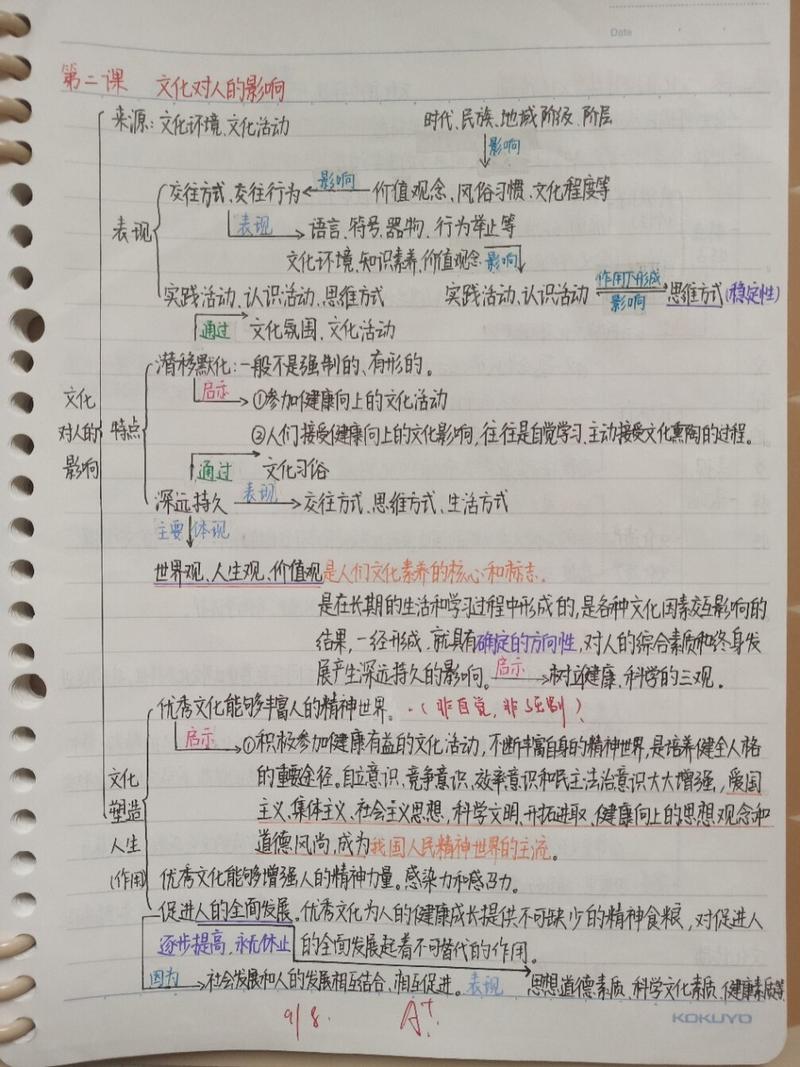 Date
第二课 文化对人的影响
来源:文化环境、文化活动 时代、民族、地域、阶级、阶层
影响
交往方式、交往行为 影响 价值观念、风俗习惯、文化程度等
表现 表现 语言、符号、器物、行为举止等
文化环境、知识素养、价值观念 影响
实践活动、认识活动、思维方式 实践活动、认识活动 作用下形成 影响 思维方式(稳定性)
通过 文化氛围、文化活动
潜移默化:一般不是强制的、有形的。
文化对人的影响 特点 启示 ①参加健康向上的文化活动
②人们接受健康向上的文化影响,往往是自觉学习、主动接受文化熏陶的过程。
通过 文化习俗
深远持久 表现 交往方式、思维方式、生活方式
主要 体现
世界观、人生观、价值观是人们文化素养的核心和标志。
是在长期的生活和学习过程中形成的,是各种文化因素交互影响的
结果,一经形成,就具有确定的方向性,对人的综合素质和终身发
展产生深远持久的影响。启示 树立健康、科学的三观。
优秀文化能够丰富人的精神世界。(非自觉,非强制)
启示 ①积极参加健康有益的文化活动,不断丰富自身的精神世界,是培养健全人格
文化塑造人生(作用) 的重要途径。自立意识、竞争意识、效率意识和民主法治意识大大增强,爱国
主义、集体主义、社会主义思想,科学文明、开拓进取、健康向上的思想观念和
道德风尚,成为我国人民精神世界的主流。
优秀文化能够增强人的精神力量。感染力和感召力。
促进人的全面发展。优秀文化为人的健康成长提供不可缺少的精神食粮,对促进人
逐步提高,永无休止 的全面发展起着不可替代的作用。
因为 社会发展和人的发展相互结合、相互促进。表现 思想道德素质、科学文化素质、健康素质等
9/8. A+
KOKUYO